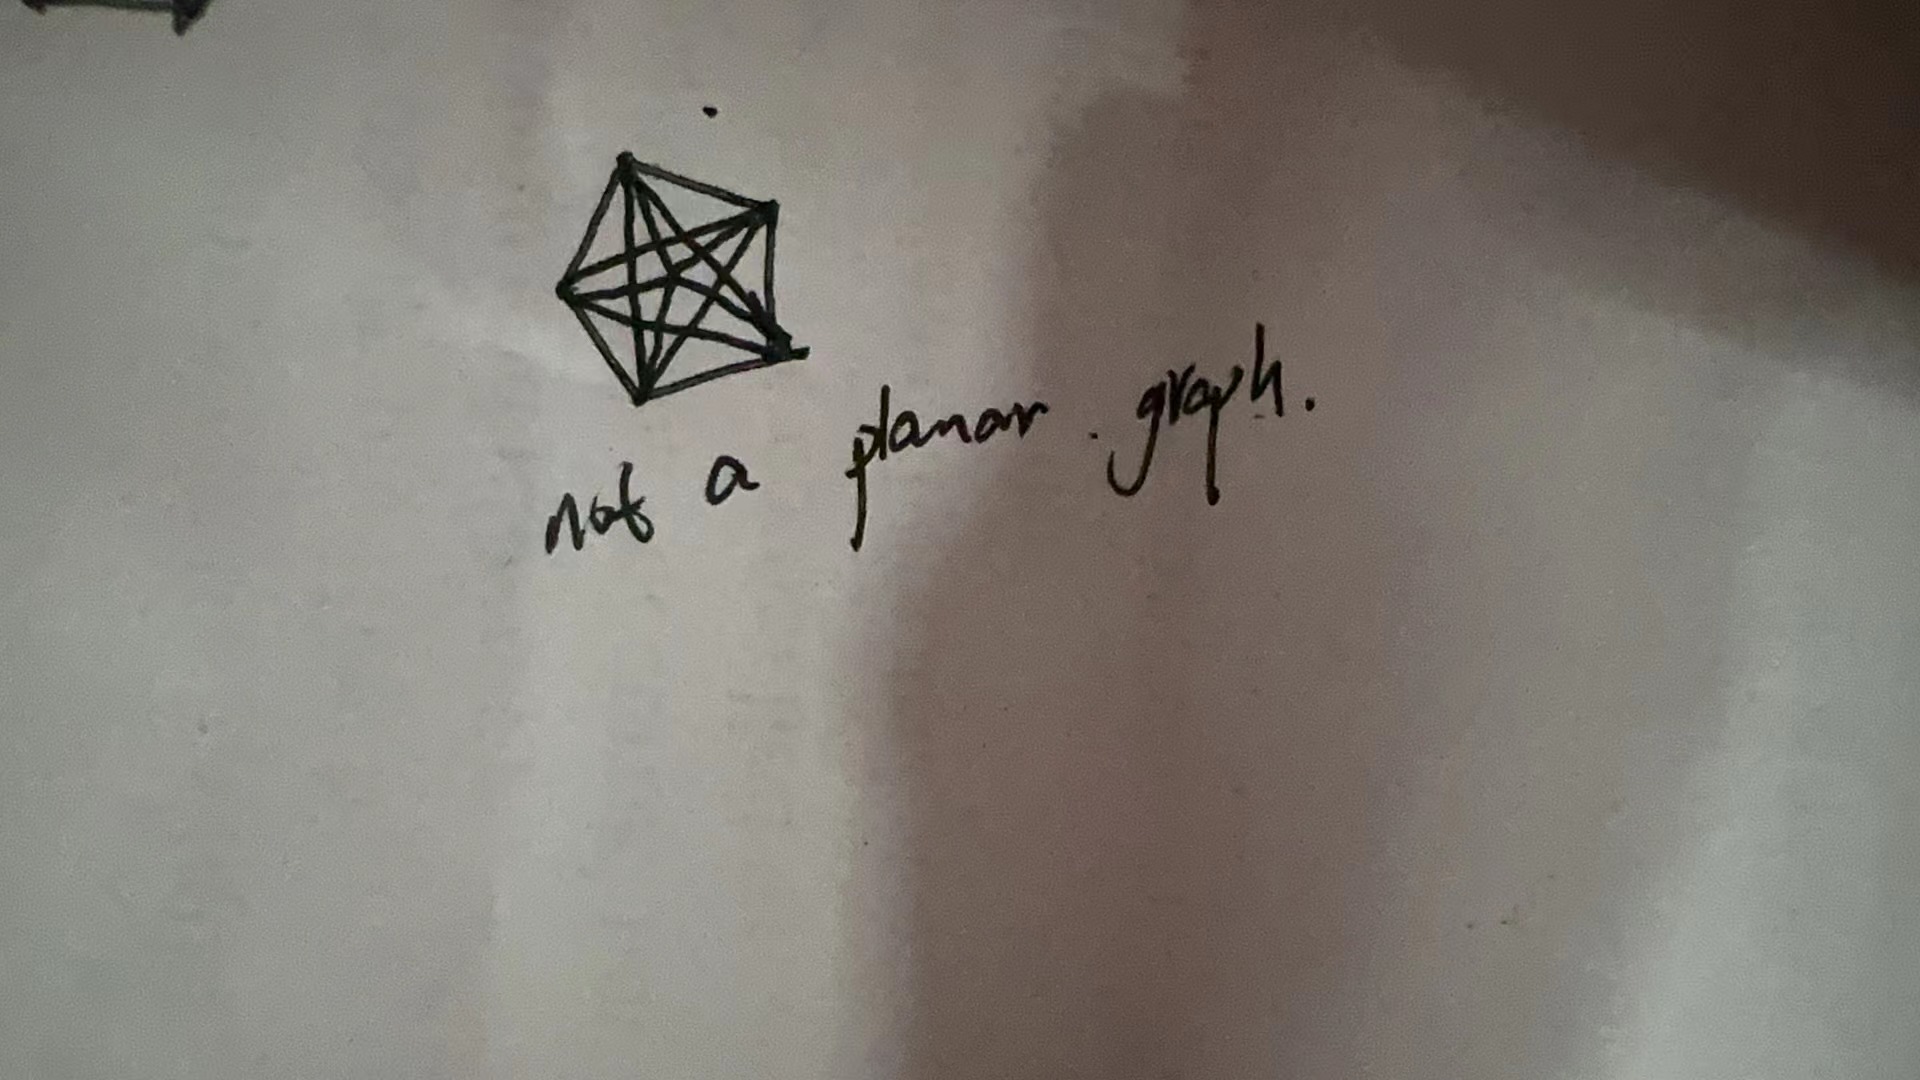 not a planar graph.